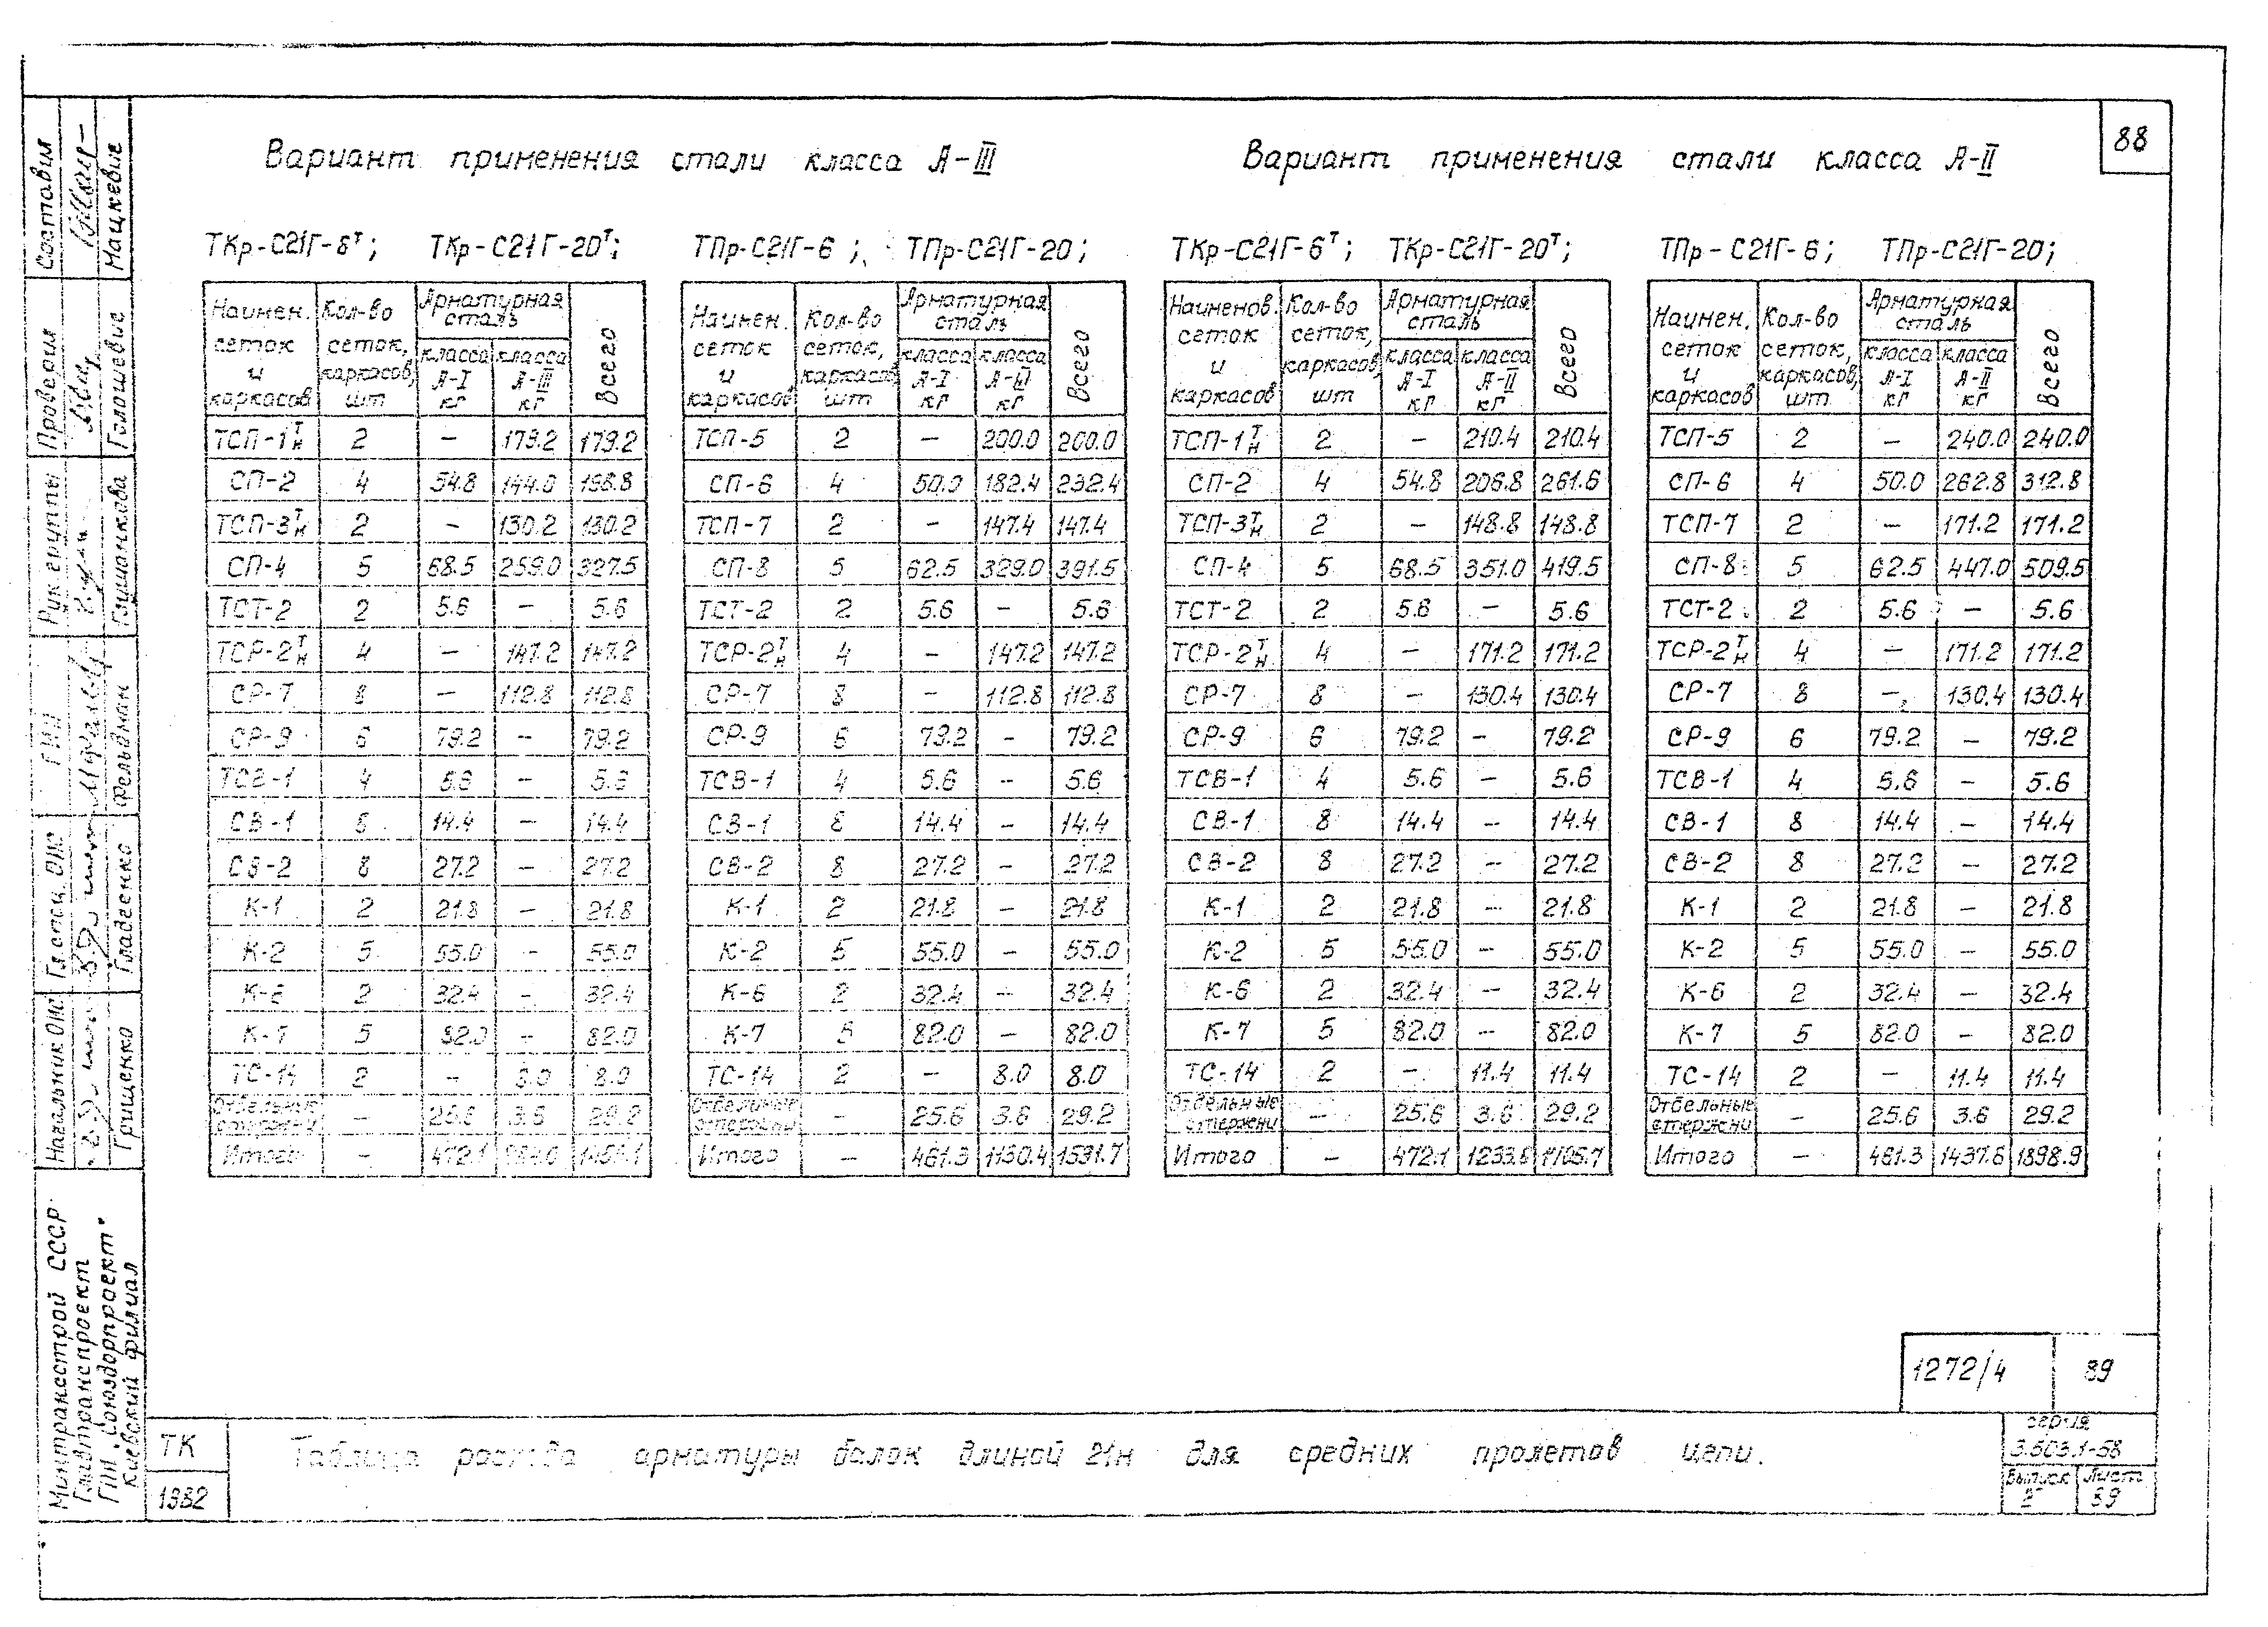 88
Вариант применения стали класса А-III
Вариант применения стали класса А-II
ТКр-С21Г-6Т; ТКр-С21Г-20Т;
Наимен. сеток и каркасов | Кол-во сеток, каркасов, шт | Арматурная сталь класса А-I кг | класса А-III кг | Всего
ТСП-1ТН 2 – 179.2 179.2
СП-2 4 54.8 144.0 198.8
ТСП-3ТН 2 – 130.2 130.2
СП-4 5 68.5 259.0 327.5
ТСТ-2 2 5.6 – 5.6
ТСР-2ТН 4 – 147.2 147.2
СР-7 8 – 112.8 112.8
СР-9 6 79.2 – 79.2
ТСВ-1 4 5.6 – 5.6
СВ-1 8 14.4 – 14.4
СВ-2 8 27.2 – 27.2
К-1 2 21.8 – 21.8
К-2 5 55.0 – 55.0
К-6 2 32.4 – 32.4
К-7 5 82.0 – 82.0
ТС-14 2 – 8.0 8.0
Отдельные стержни – 25.6 3.6 29.2
Итого – 472.1
ТПр-С21Г-6; ТПр-С21Г-20;
Наимен. сеток и каркасов | Кол-во сеток, каркасов, шт | Арматурная сталь класса А-I кг | класса А-III кг | Всего
ТСП-5 2 – 200.0 200.0
СП-6 4 50.0 182.4 232.4
ТСП-7 2 – 147.4 147.4
СП-8 5 62.5 329.0 391.5
ТСТ-2 2 5.6 – 5.6
ТСР-2ТН 4 – 147.2 147.2
СР-7 8 – 112.8 112.8
СР-9 6 79.2 – 79.2
ТСВ-1 4 5.6 – 5.6
СВ-1 8 14.4 – 14.4
СВ-2 8 27.2 – 27.2
К-1 2 21.8 – 21.8
К-2 5 55.0 – 55.0
К-6 2 32.4 – 32.4
К-7 5 82.0 – 82.0
ТС-14 2 – 8.0 8.0
Отдельные стержни – 25.6 3.6 29.2
Итого – 461.3 1130.4 1591.7
ТКр-С21Г-6Т; ТКр-С21Г-20Т;
Наименов. сеток и каркасов | Кол-во сеток, каркасов, шт | Арматурная сталь класса А-I кг | класса А-II кг | Всего
ТСП-1ТН 2 – 210.4 210.4
СП-2 4 54.8 206.8 261.6
ТСП-3ТН 2 – 148.8 148.8
СП-4 5 68.5 351.0 419.5
ТСТ-2 2 5.6 – 5.6
ТСР-2ТН 4 – 171.2 171.2
СР-7 8 – 130.4 130.4
СР-9 6 79.2 – 79.2
ТСВ-1 4 5.6 – 5.6
СВ-1 8 14.4 – 14.4
СВ-2 8 27.2 – 27.2
К-1 2 21.8 – 21.8
К-2 5 55.0 – 55.0
К-6 2 32.4 – 32.4
К-7 5 82.0 – 82.0
ТС-14 2 – 11.4 11.4
Отдельные стержни – 25.6 3.6 29.2
Итого – 472.1 1233.6 1705.7
ТПр-С21Г-6; ТПр-С21Г-20;
Наимен. сеток и каркасов | Кол-во сеток, каркасов, шт | Арматурная сталь класса А-I кг | класса А-II кг | Всего
ТСП-5 2 – 240.0 240.0
СП-6 4 50.0 262.8 312.8
ТСП-7 2 – 171.2 171.2
СП-8 5 62.5 447.0 509.5
ТСТ-2 2 5.6 – 5.6
ТСР-2ТН 4 – 171.2 171.2
СР-7 8 – 130.4 130.4
СР-9 6 79.2 – 79.2
ТСВ-1 4 5.6 – 5.6
СВ-1 8 14.4 – 14.4
СВ-2 8 27.2 – 27.2
К-1 2 21.8 – 21.8
К-2 5 55.0 – 55.0
К-6 2 32.4 – 32.4
К-7 5 82.0 – 82.0
ТС-14 2 – 11.4 11.4
Отдельные стержни – 25.6 3.6 29.2
Итого – 461.3 1437.6 1898.9
1272/4 89
ТК
1982
Таблица расхода арматуры балок длиной 21м для средних пролетов цепи.
серия
3.503.1-58
Выпуск 2
Лист 89
Составил Мацкевич
Проверил Голошевич
Рук группы
ГИП Фельдман
Гл. спец. ОИС Гладченко
Начальник ОИС Грищенко
Минтрансстрой СССР
Главтранспроект
ГПИ „Союздорпроект"
Киевский филиал